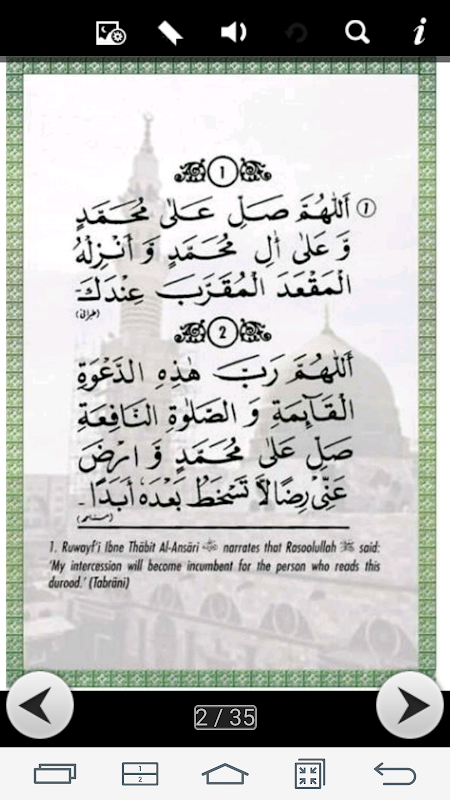 1
اَللّٰهُمَّ صَلِّ عَلٰى مُحَمَّدٍ ①
وَّ عَلٰى اٰلِ مُحَمَّدٍ وَ اَنْزِلْهُ
الْمَقْعَدَ الْمُقَرَّبَ عِنْدَكَ
(طبرانی)
2
اَللّٰهُمَّ رَبَّ هٰذِهِ الدَّعْوَةِ
الْقَآئِمَةِ وَ الصَّلٰوةِ النَّافِعَةِ
صَلِّ عَلٰى مُحَمَّدٍ وَّ ارْضَ
عَنِّىْ رِضًا لَّا تَسْخَطُ بَعْدَهٗ اَبَدًا۔
(مسند احمد)
1. Ruwayf'i Ibne Thābit Al-Ansāri narrates that Rasoolullah ﷺ said:
'My intercession will become incumbent for the person who reads this
durood.' (Tabrāni)
2 / 35
1
2